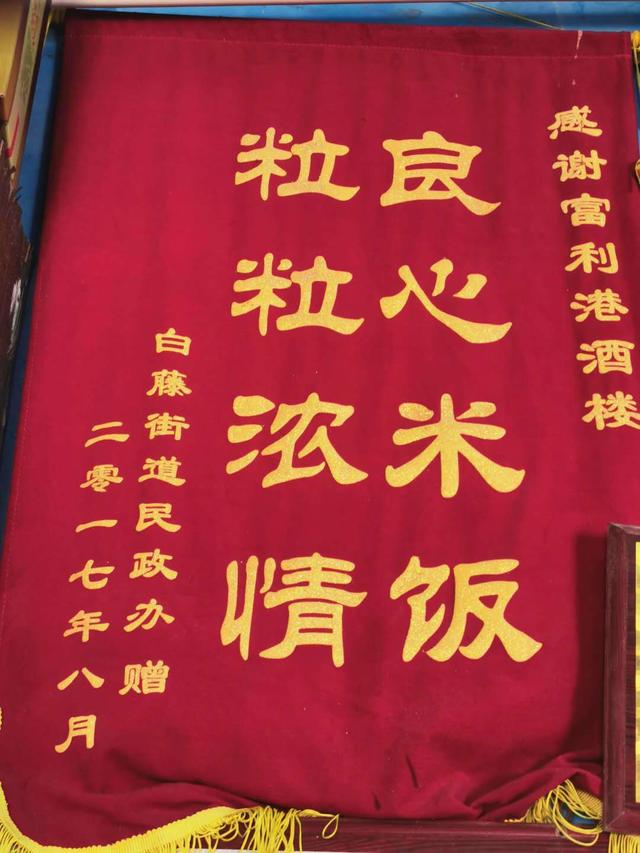 感谢富利港酒楼
良心米饭
粒粒浓情
白藤街道民政办赠
二零一七年八月